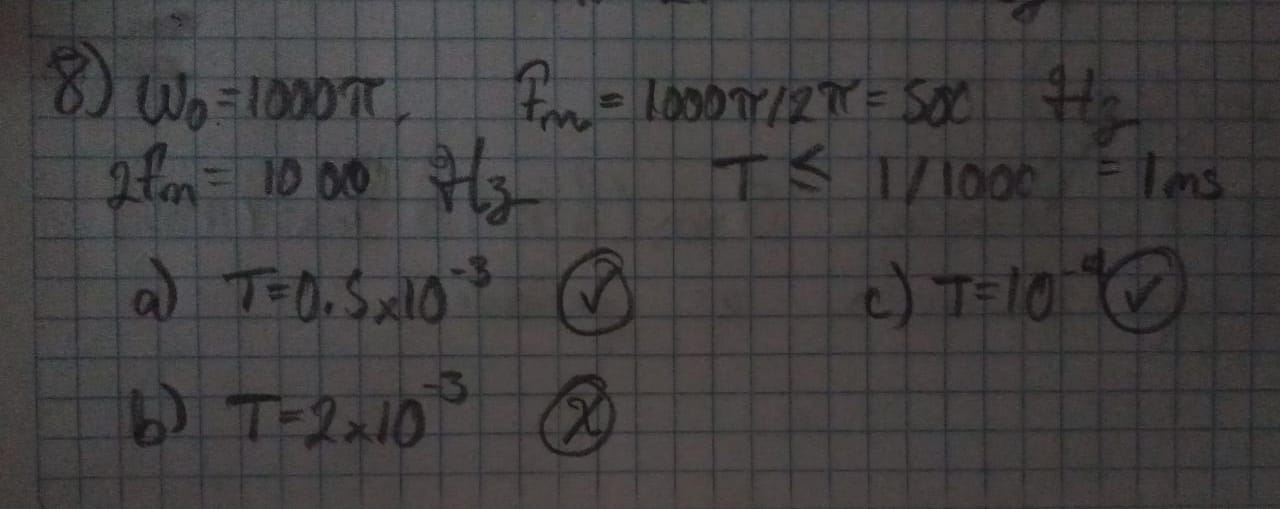 8) ω₀=1000π, fₘ = 1000π/2π = 500 Hz
2fₘ = 1000 Hz T ≤ 1/1000 = 1ms
a) T=0.5×10⁻³ ✓ c) T=10⁻⁴ ✓
b) T=2×10⁻³ X